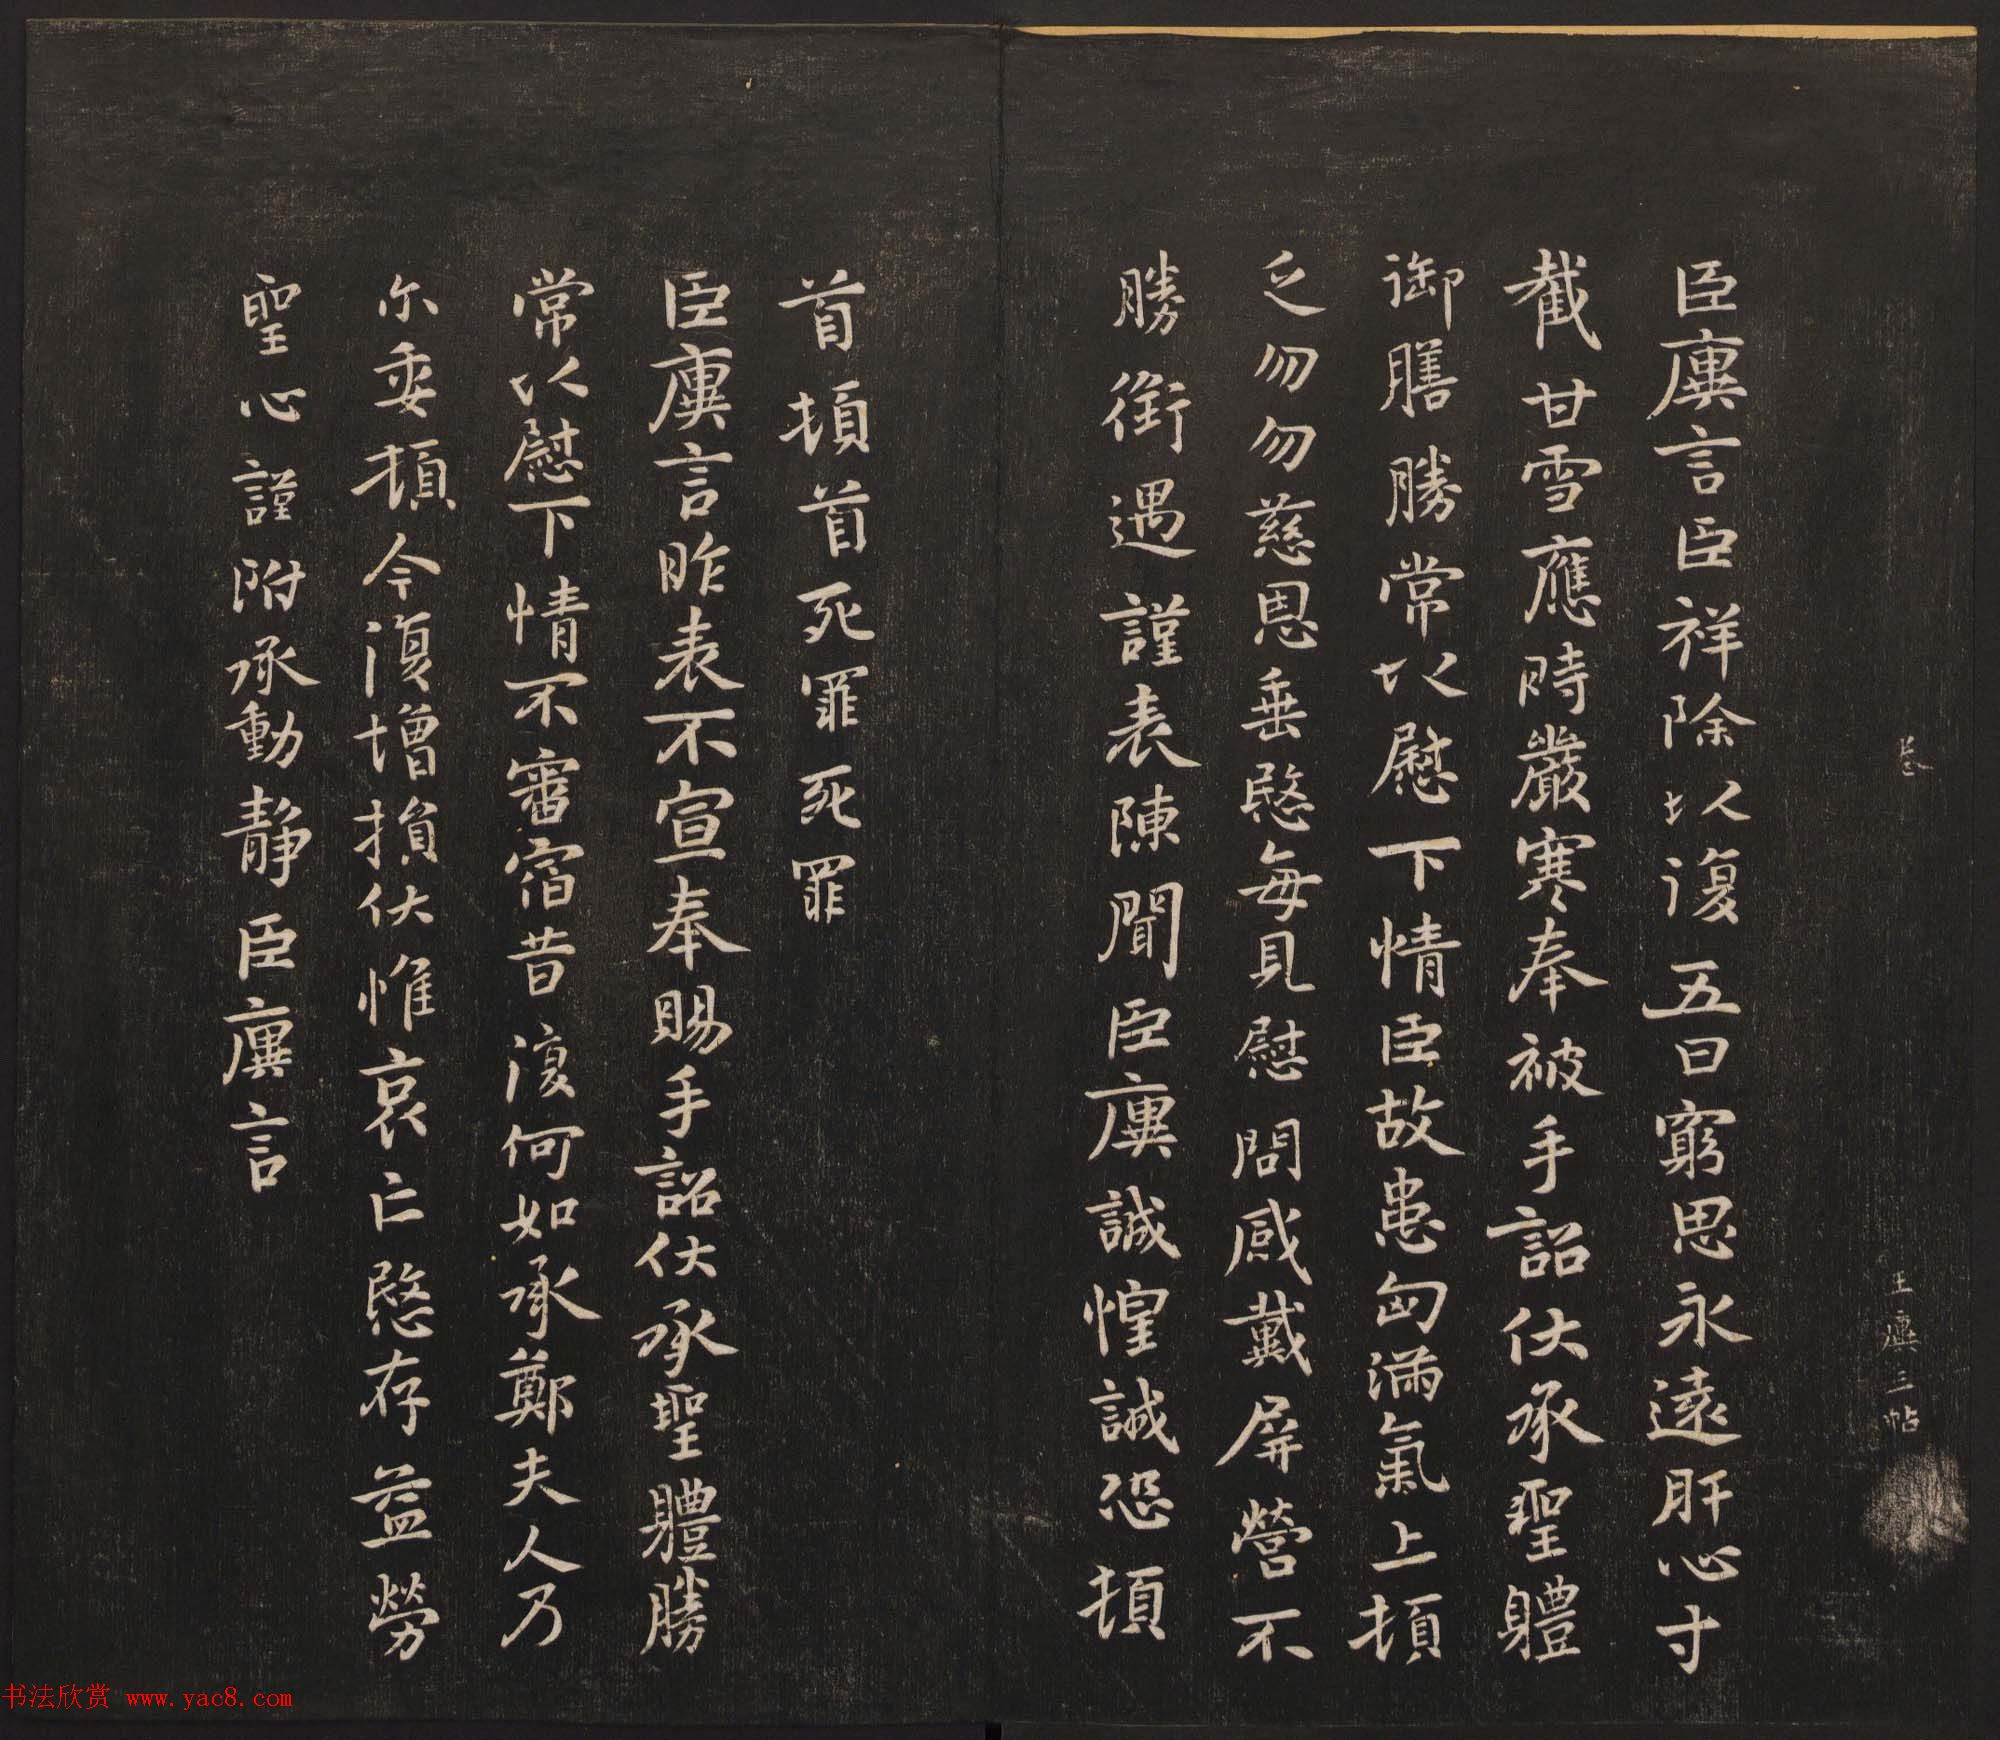 卷 王廙三帖
臣廙言臣祥除以復五日窮思永遠肝心寸
截甘雪應時嚴寒奉被手詔伏承聖體
御膳勝常以慰下情臣故患匈滿氣上頓
乏勿勿慈恩垂愍每見慰問感戴屏營不
勝銜遇謹表陳聞臣廙誠惶誠恐頓
首頓首死罪死罪
臣廙言昨表不宣奉賜手詔伏承聖體勝
常以慰下情不審宿昔復何如承鄭夫人乃
尓委頓今復增損伏惟哀亡愍存益勞
聖心謹附承動靜臣廙言
书法欣赏 www.yac8.com